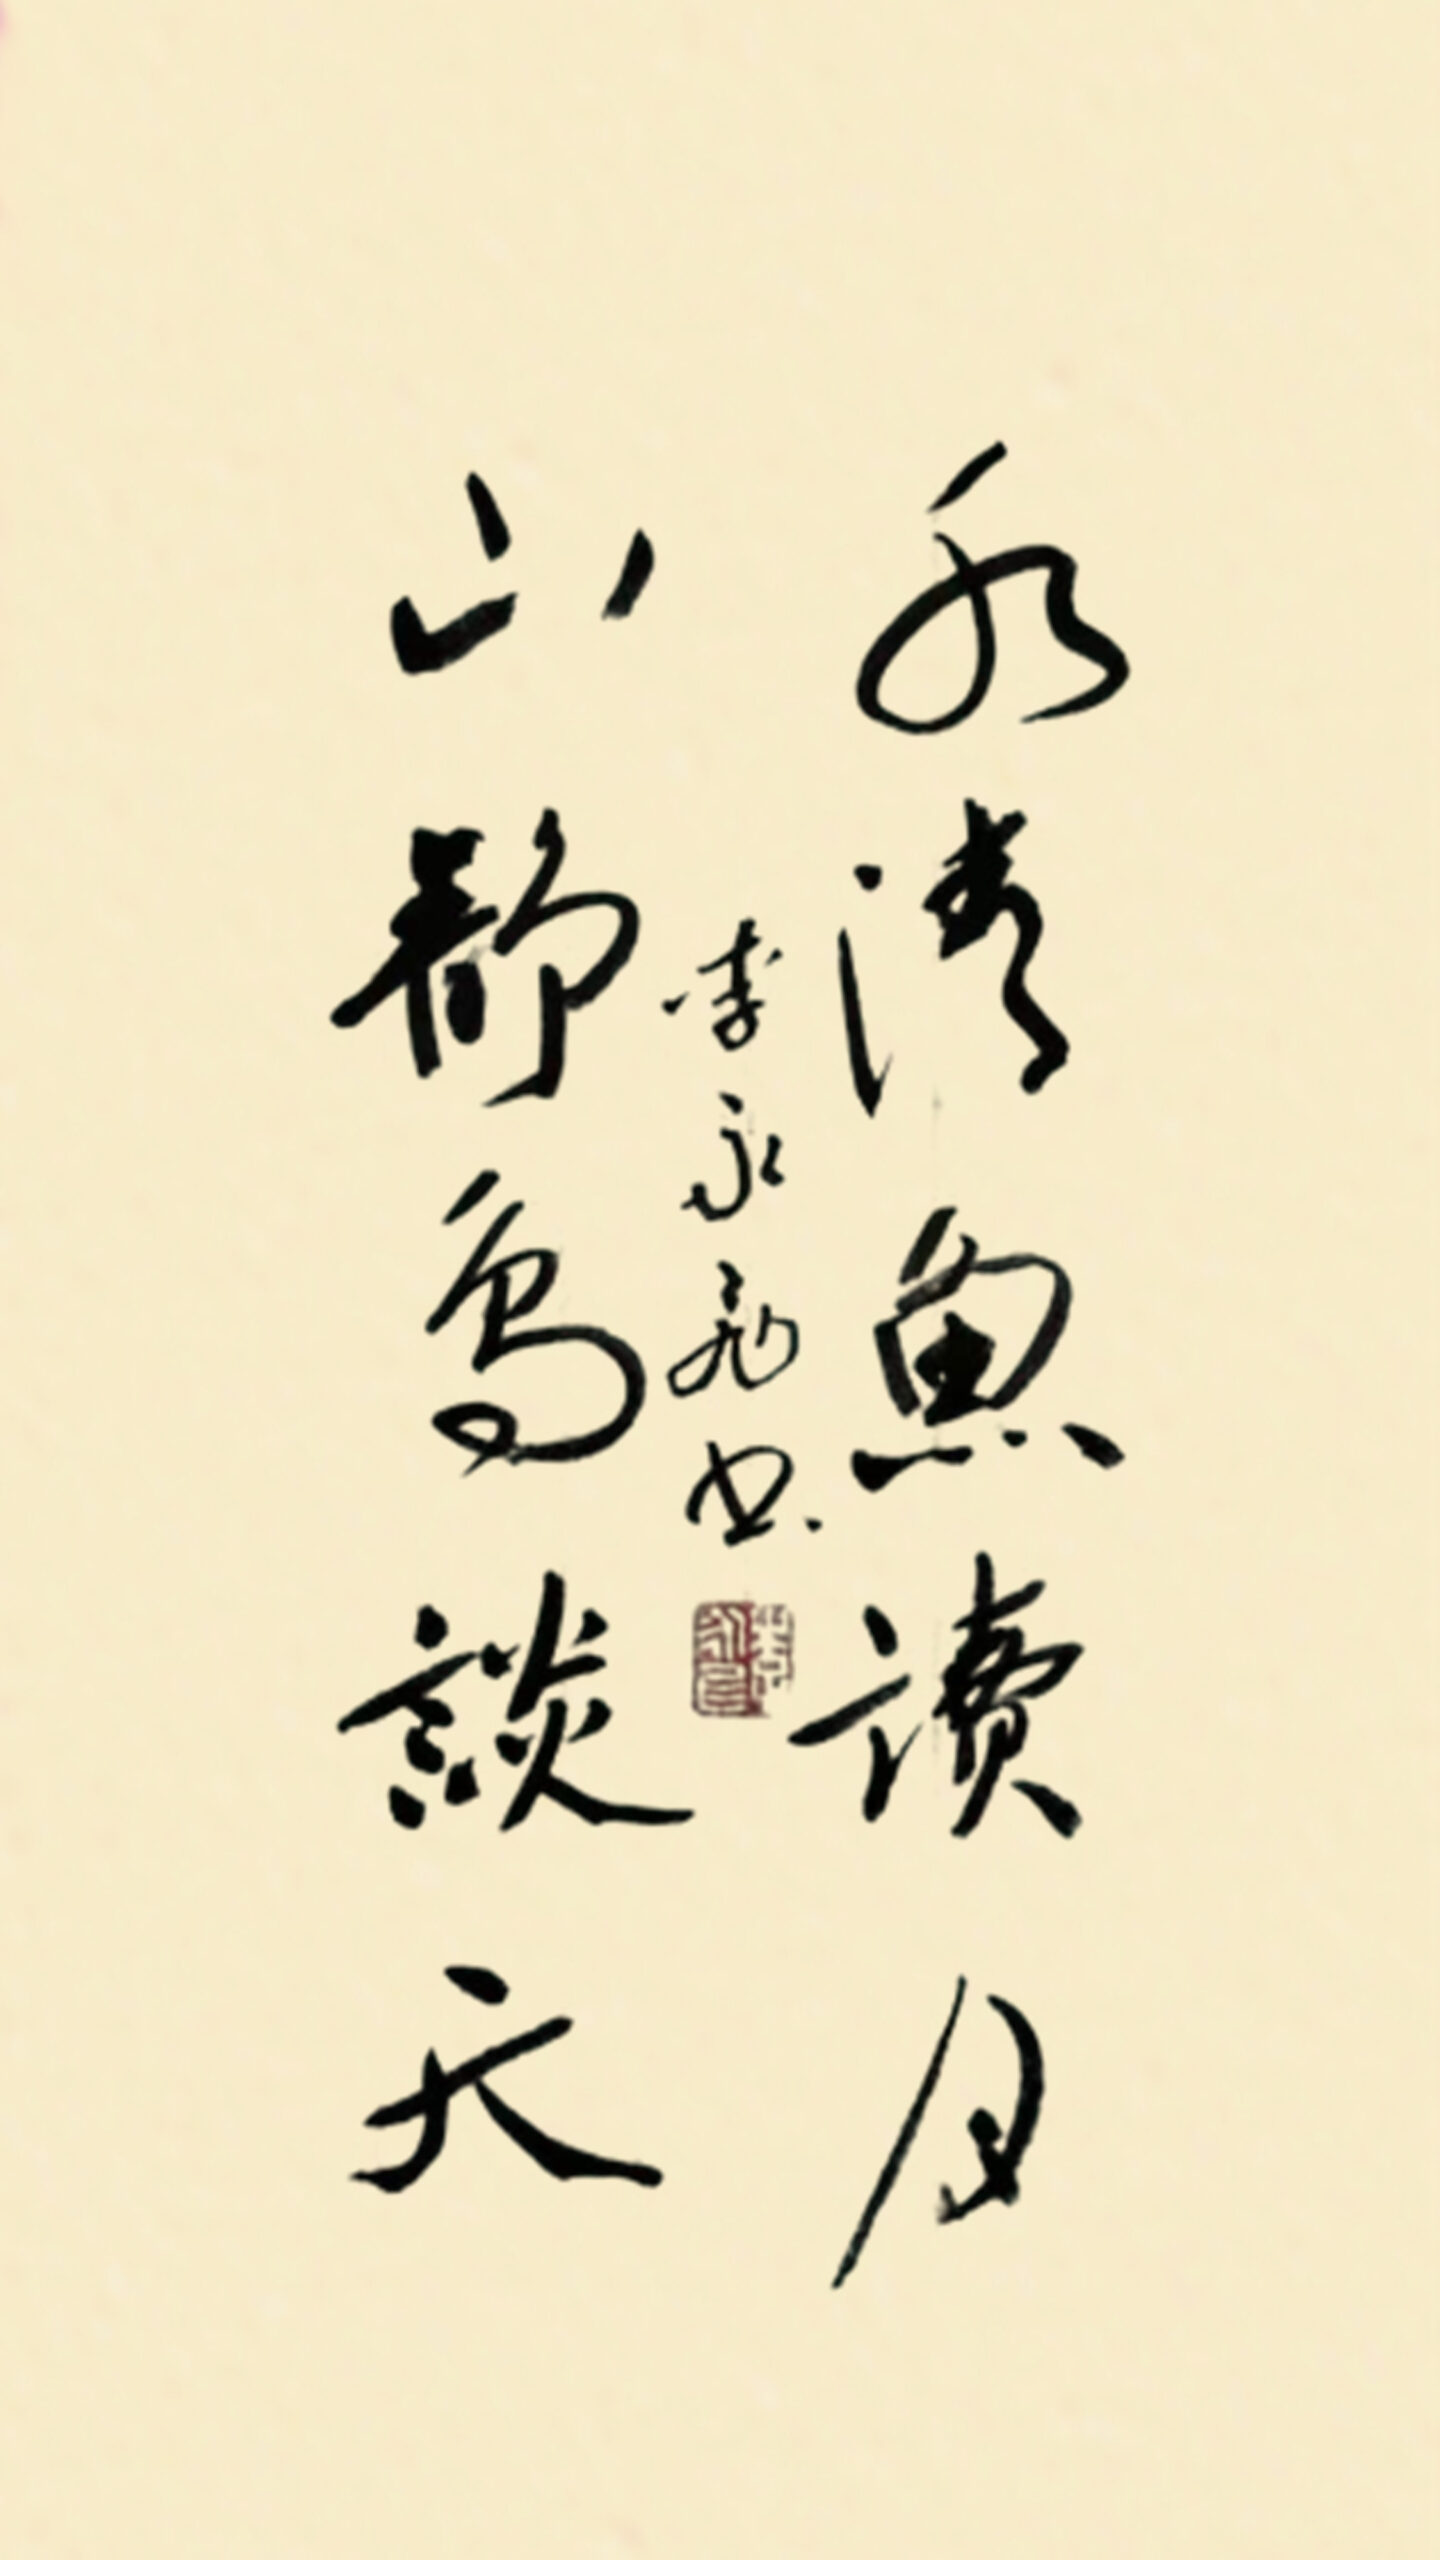 水清魚讀月
山静鳥談天
李永飛书